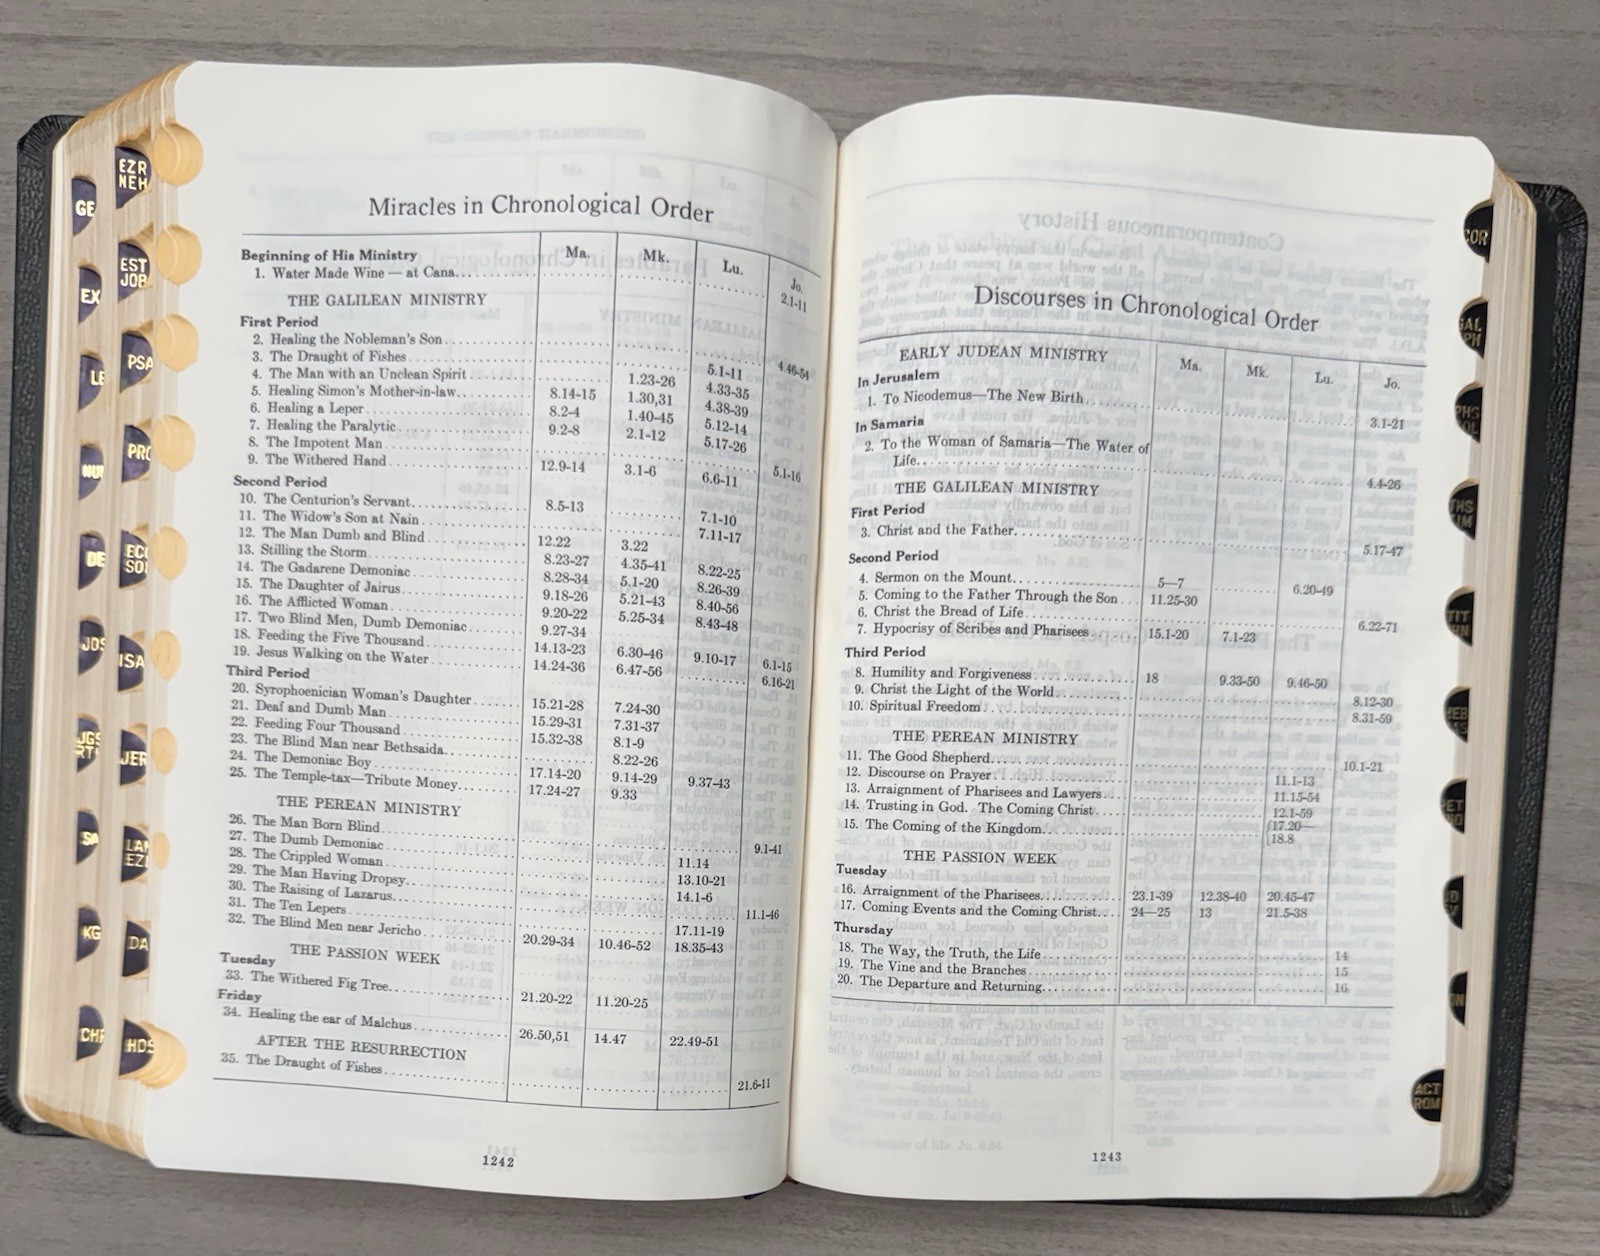 Miracles in Chronological Order
Ma. Mk. Lu. Jo.
Beginning of His Ministry
1. Water Made Wine — at Cana 2.1-11
THE GALILEAN MINISTRY
First Period
2. Healing the Nobleman's Son 4.46-54
3. The Draught of Fishes 5.1-11
4. The Man with an Unclean Spirit 1.23-26 4.33-35
5. Healing Simon's Mother-in-law 8.14-15 1.30,31 4.38-39
6. Healing a Leper 8.2-4 1.40-45 5.12-14
7. Healing the Paralytic 9.2-8 2.1-12 5.17-26
8. The Impotent Man 5.1-16
9. The Withered Hand 12.9-14 3.1-6 6.6-11
Second Period
10. The Centurion's Servant 8.5-13 7.1-10
11. The Widow's Son at Nain 7.11-17
12. The Man Dumb and Blind 12.22 3.22
13. Stilling the Storm 8.23-27 4.35-41 8.22-25
14. The Gadarene Demoniac 8.28-34 5.1-20 8.26-39
15. The Daughter of Jairus 9.18-26 5.21-43 8.40-56
16. The Afflicted Woman 9.20-22 5.25-34 8.43-48
17. Two Blind Men, Dumb Demoniac 9.27-34
18. Feeding the Five Thousand 14.13-23 6.30-46 9.10-17 6.1-15
19. Jesus Walking on the Water 14.24-36 6.47-56 6.16-21
Third Period
20. Syrophoenician Woman's Daughter 15.21-28 7.24-30
21. Deaf and Dumb Man 15.29-31 7.31-37
22. Feeding Four Thousand 15.32-38 8.1-9
23. The Blind Man near Bethsaida 8.22-26
24. The Demoniac Boy 17.14-20 9.14-29 9.37-43
25. The Temple-tax—Tribute Money 17.24-27 9.33
THE PEREAN MINISTRY
26. The Man Born Blind 9.1-41
27. The Dumb Demoniac 11.14
28. The Crippled Woman 13.10-21
29. The Man Having Dropsy 14.1-6
30. The Raising of Lazarus 11.1-46
31. The Ten Lepers 17.11-19
32. The Blind Men near Jericho 20.29-34 10.46-52 18.35-43
THE PASSION WEEK
Tuesday
33. The Withered Fig Tree 21.20-22 11.20-25
Friday
34. Healing the ear of Malchus 26.50,51 14.47 22.49-51
AFTER THE RESURRECTION
35. The Draught of Fishes 21.6-11
1242
Discourses in Chronological Order
Ma. Mk. Lu. Jo.
EARLY JUDEAN MINISTRY
In Jerusalem
1. To Nicodemus—The New Birth 3.1-21
In Samaria
2. To the Woman of Samaria—The Water of
Life 4.4-26
THE GALILEAN MINISTRY
First Period
3. Christ and the Father 5.17-47
Second Period
4. Sermon on the Mount 5—7 6.20-49
5. Coming to the Father Through the Son 11.25-30
6. Christ the Bread of Life 6.22-71
7. Hypocrisy of Scribes and Pharisees 15.1-20 7.1-23
Third Period
8. Humility and Forgiveness 18 9.33-50 9.46-50
9. Christ the Light of the World 8.12-30
10. Spiritual Freedom 8.31-59
THE PEREAN MINISTRY
11. The Good Shepherd 10.1-21
12. Discourse on Prayer 11.1-13
13. Arraignment of Pharisees and Lawyers 11.15-54
14. Trusting in God. The Coming Christ 12.1-59
15. The Coming of the Kingdom 17.20—
18.8
THE PASSION WEEK
Tuesday
16. Arraignment of the Pharisees 23.1-39 12.38-40 20.45-47
17. Coming Events and the Coming Christ 24—25 13 21.5-38
Thursday
18. The Way, the Truth, the Life 14
19. The Vine and the Branches 15
20. The Departure and Returning 16
1243
GE
EX
DE
KG
EZR
NEH
EST
JOB
PSA
PRO
ISA
JER
DA
HOS
COR
ACT
ROM